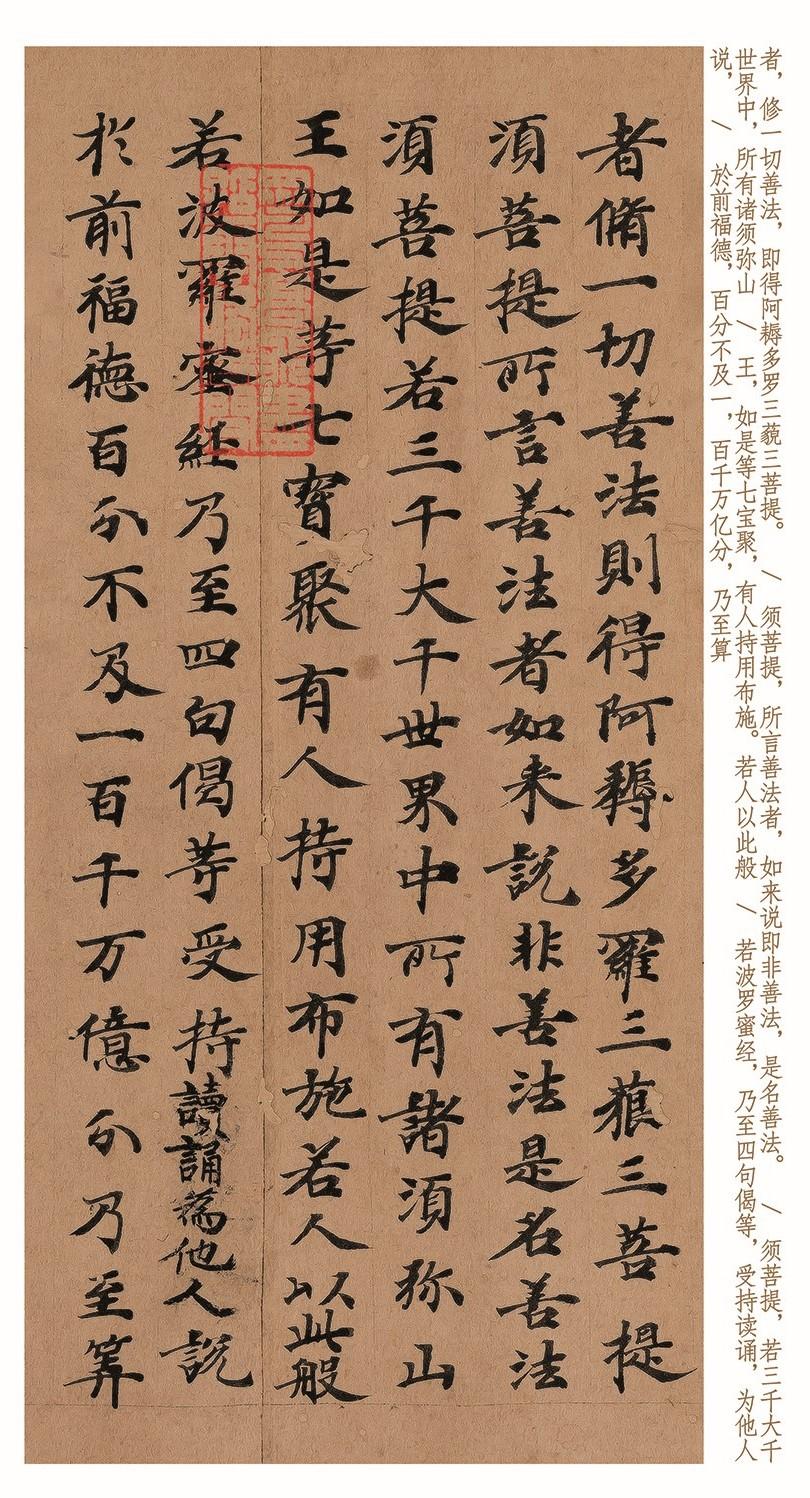 者，修一切善法，即得阿耨多罗三藐三菩提。 / 须菩提，所言善法者，如来说即非善法，是名善法。 / 须菩提，若三千大千
世界中，所有诸须弥山 / 王，如是等七宝聚，有人持用布施。若人以此般 / 若波罗蜜经，乃至四句偈等，受持读诵，为他人
说， / 於前福德，百分不及一，百千万亿分，乃至算
者脩一切善法則得阿耨多羅三藐三菩提
須菩提所言善法者如来說非善法是名善法
須菩提若三千大千世界中所有諸須弥山
王如是等七寶聚有人持用布施若人以此般
若波羅蜜經乃至四句偈等受持讀誦為他人說
於前福德百分不及一百千万億分乃至筭